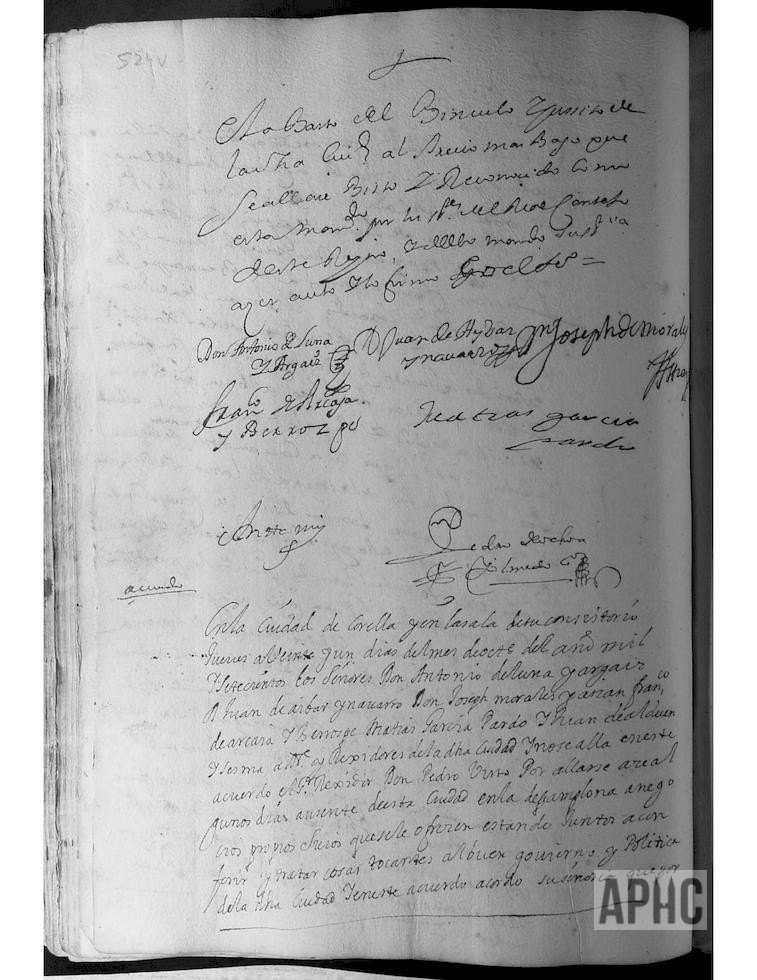 524v
abasto del Binculo y junto de
la dha Ciud al Precio mas Bajo que
se allare Bisto y Reconocido Como
esta mando por los Sres del Real Consejo
deste Reyno, y dello mando
acer auto y lo firmo
Don Antonio de Luna
y Argaiz
D Juan de Aybar
y navarro
Joseph de Morales
Franco de Arcaya
y Berrozpe
Mathias garcia
Pardo
Ante mi
Pedro de Ochoa
Olmedo
acuerdo
En la Ciudad de Corella y en la sala de su consistorio
Jueves a Veinte y un dias del mes de octe del año mil
y setecientos los Señores Don Antonio de luna y argaiz
D Juan de aibar y navarro Don Joseph morales y Franco
de arcaya y Berrospe Matias Garcia Pardo y Juan de
y sesma Alle y Rexidores de la dha Ciudad y no se alla en este
acuerdo el Sr Rexidor Don Pedro Virto Por allarse a
gunos dias ausente de esta Ciudad en la de Pamplona a nego
cios propios suios que se le ofrecen estando Juntos a con
ferir y tratar cosas tocantes al buen govierno y Politica
de la dha Ciudad y en este acuerdo acordo su señoria que por
APHC